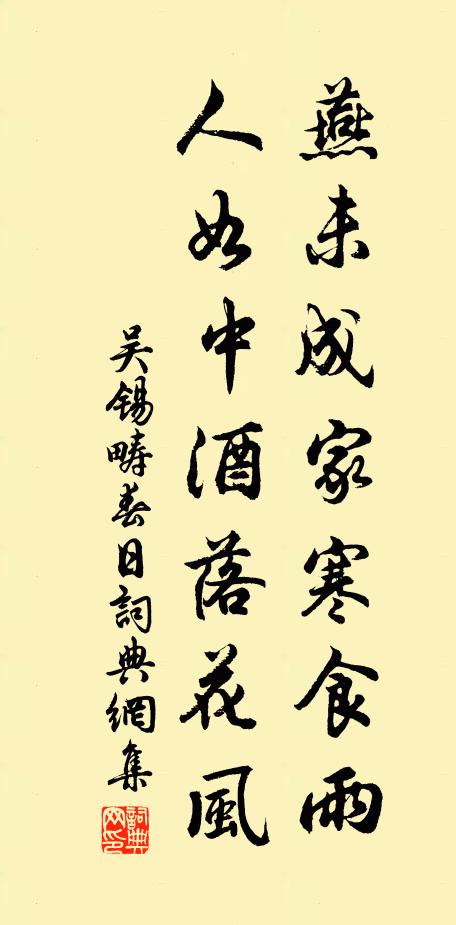 燕未成家寒食雨
人如中酒落花風
吴錫疇春日詞典網集
詞典網印